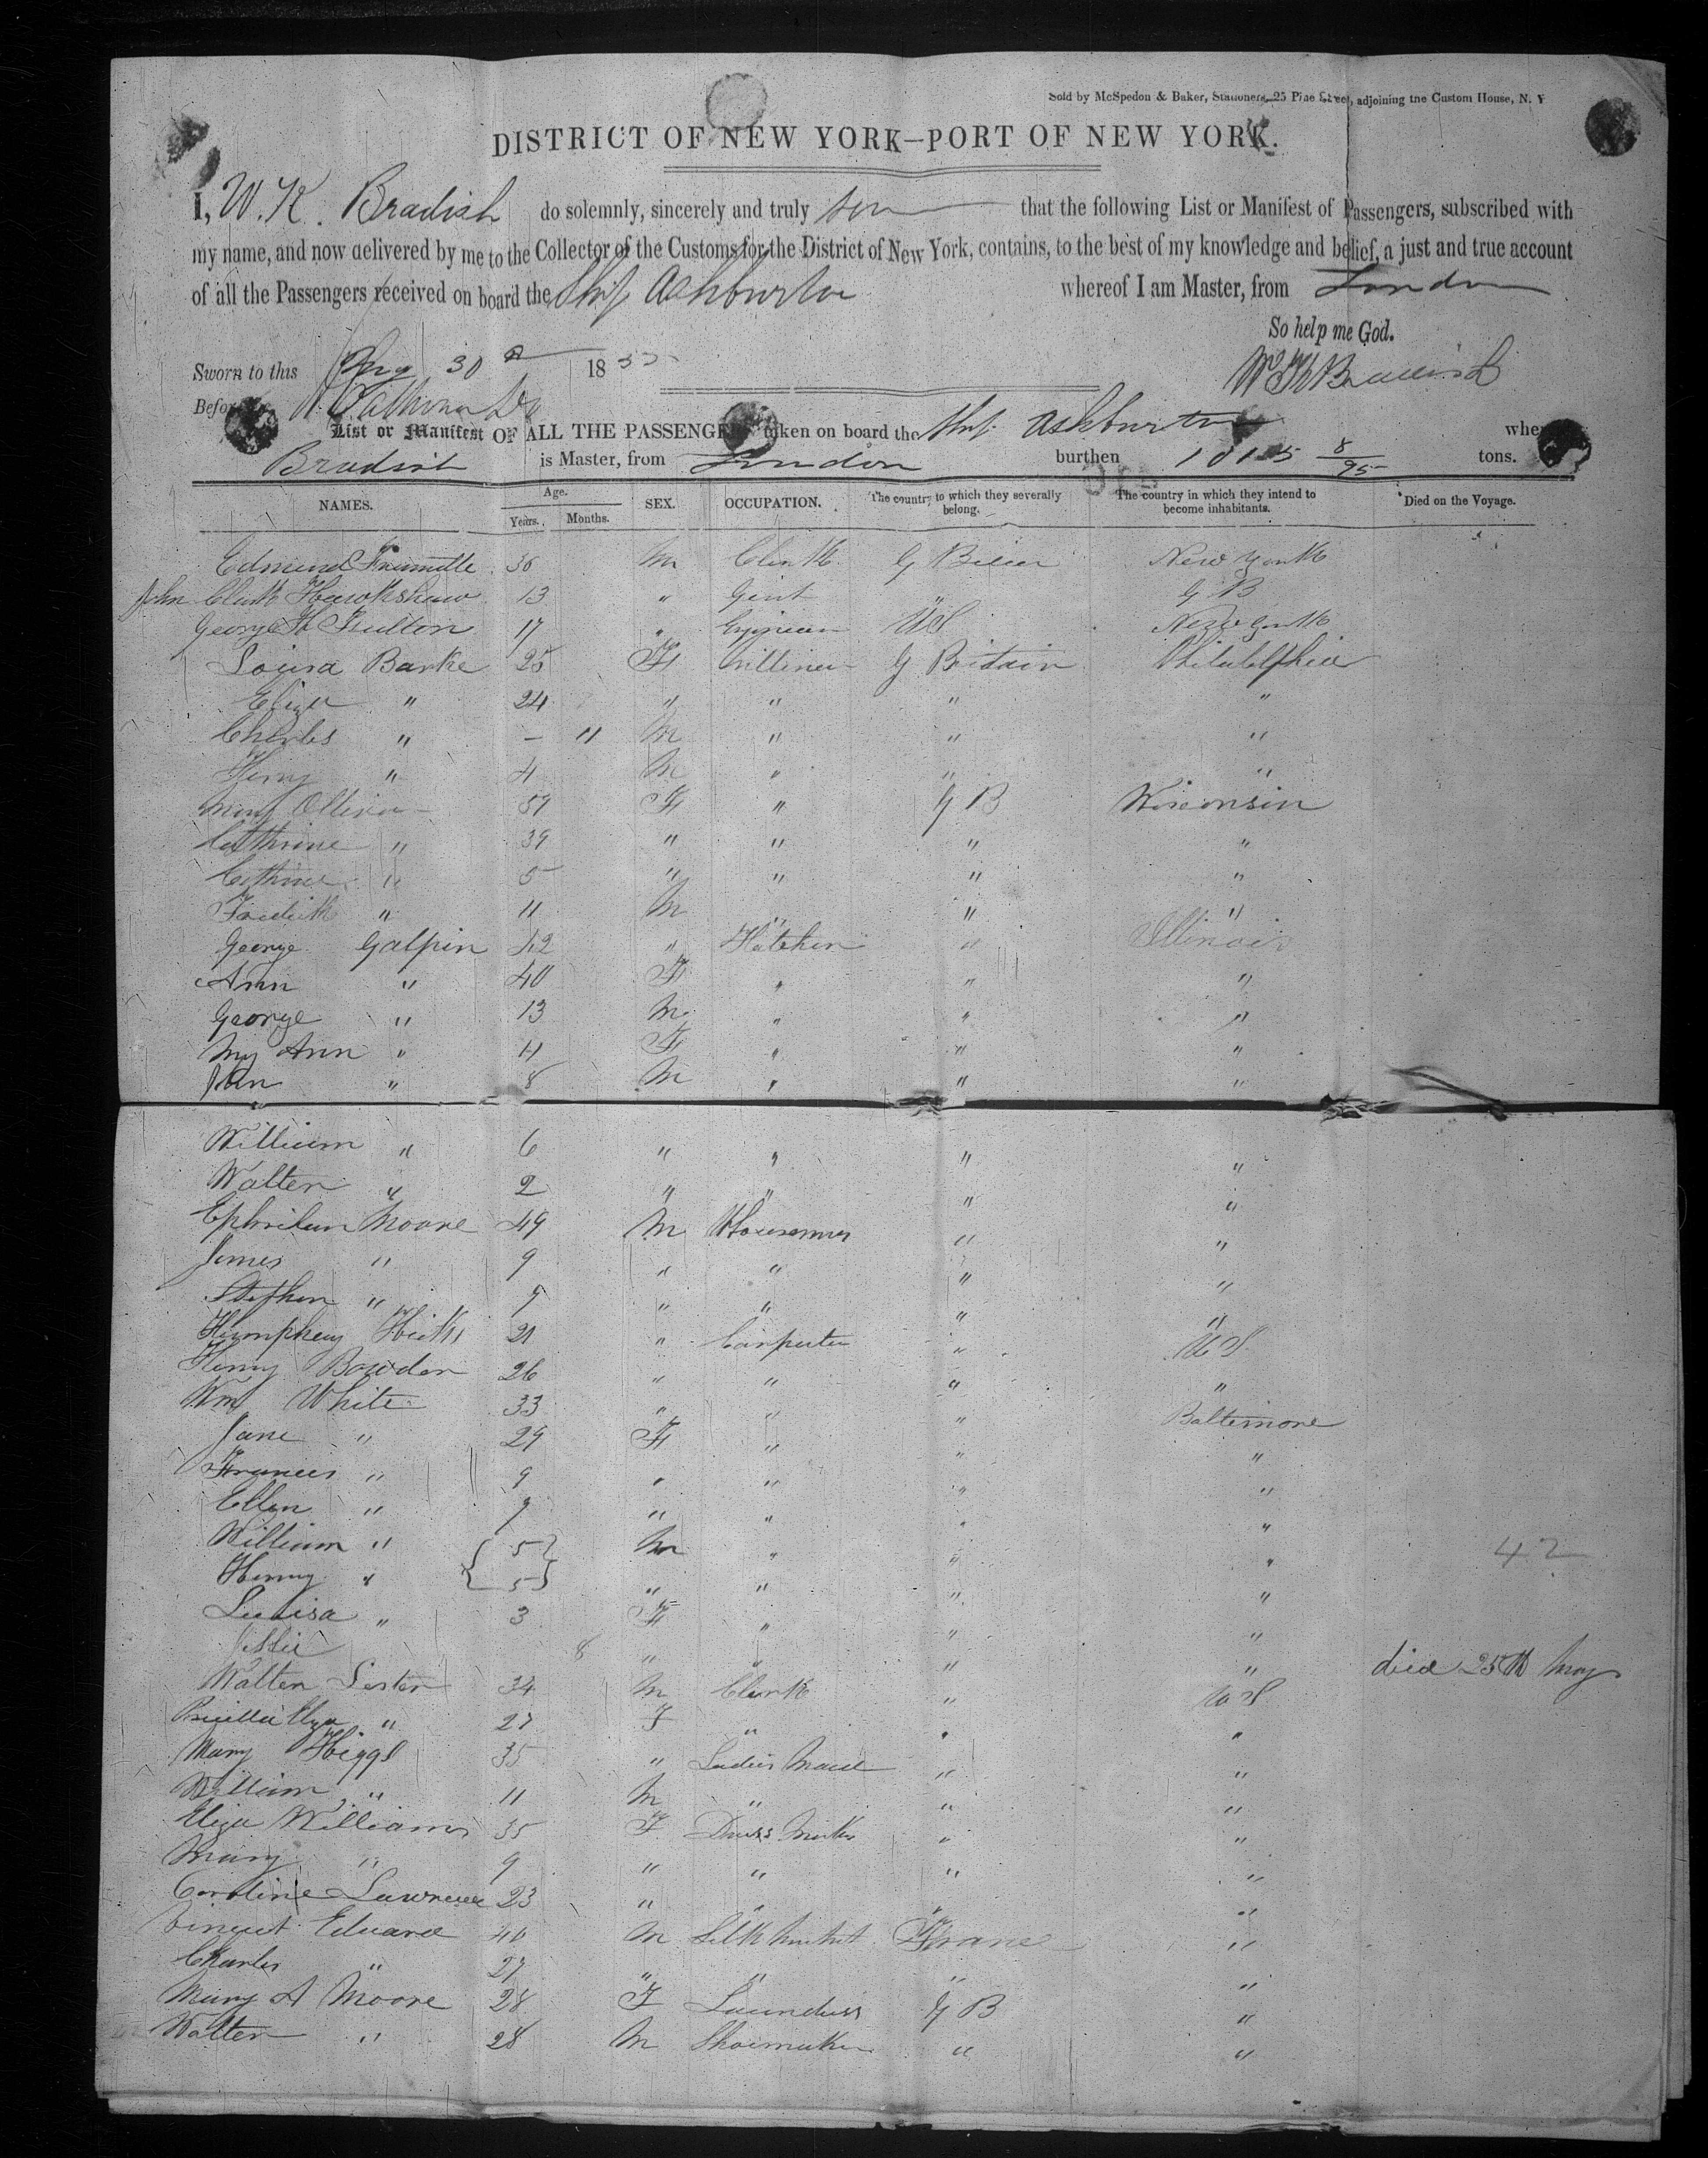 Sold by McSpedon & Baker, Stationers, 25 Pine Street, adjoining the Custom House, N. Y
DISTRICT OF NEW YORK—PORT OF NEW YORK.
I, W. K. Bradish do solemnly, sincerely and truly that the following List or Manifest of Passengers, subscribed with
my name, and now delivered by me to the Collector of the Customs for the District of New York, contains, to the best of my knowledge and belief, a just and true account
of all the Passengers received on board the Ship Ashburton whereof I am Master, from London
So help me God.
Sworn to this 30 18
W K Bradish
Before
List or Manifest OF ALL THE PASSENGERS taken on board the Ship Ashburton
Bradish is Master, from London burthen 1015 8/95 tons.
NAMES. Age. SEX. OCCUPATION. The country to which they severally belong. The country in which they intend to become inhabitants. Died on the Voyage.
Years. Months.
Edmund 30 M Clerk G New York
John Clark Hawkshaw 13 " Gent " G B
George H Fulton 17 " Engineer US New York
Louisa Barke 25 F Milliner G Britain Philadelphia
Eliza " 24 " " " "
Charles " — 11 M " " "
Henry " 4 M " " "
Mary Oliver 59 F " G B Wisconsin
Cathrine " 39 " " " "
Cathrine " 5 " " " "
Fredrik " 11 M " " "
George Galpin 42 " " Illinois
Ann " 40 F " " "
George " 13 M " " "
My Ann " 11 F " " "
John " 8 M " " "
William " 6 " " " "
Walter " 2 " " " "
Moore 49 M " "
James " 9 " " " "
Stephen " 9 " " " "
Humphrey Hicks 21 " Carpenter " US
Henry Bowden 26 " " " "
Wm White 33 " " " Baltimore
Jane " 29 F " " "
Frances " 9 " " " "
Ellen " 7 " " " "
William " 5 M " " "
42
Henry " 5 " " " "
Luisa " 3 F " " "
8 " " " " died 25th May
Walter Lester 34 M Clerk " US
Eliza " 27 F " " "
Mary Higgs 35 " Ladies Maid " "
William " 11 M " " "
Eliza Williams 35 F Dress Maker " "
Mary " 9 " " " "
Caroline Lawrence 23 " " " "
Vincent Eduard 40 M Silk France "
Charles " 27 " " " "
Mary A Moore 28 F Laundress G B "
Walter " 28 M Shoemaker " "